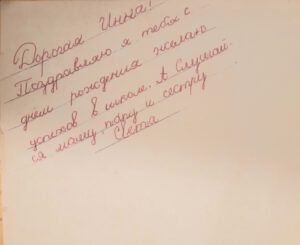 Дорогая Инна!
Поздравляю я тебя с
днём рождения желаю
успехов в школе. А Слушай
ся маму, папу и сестру
Света